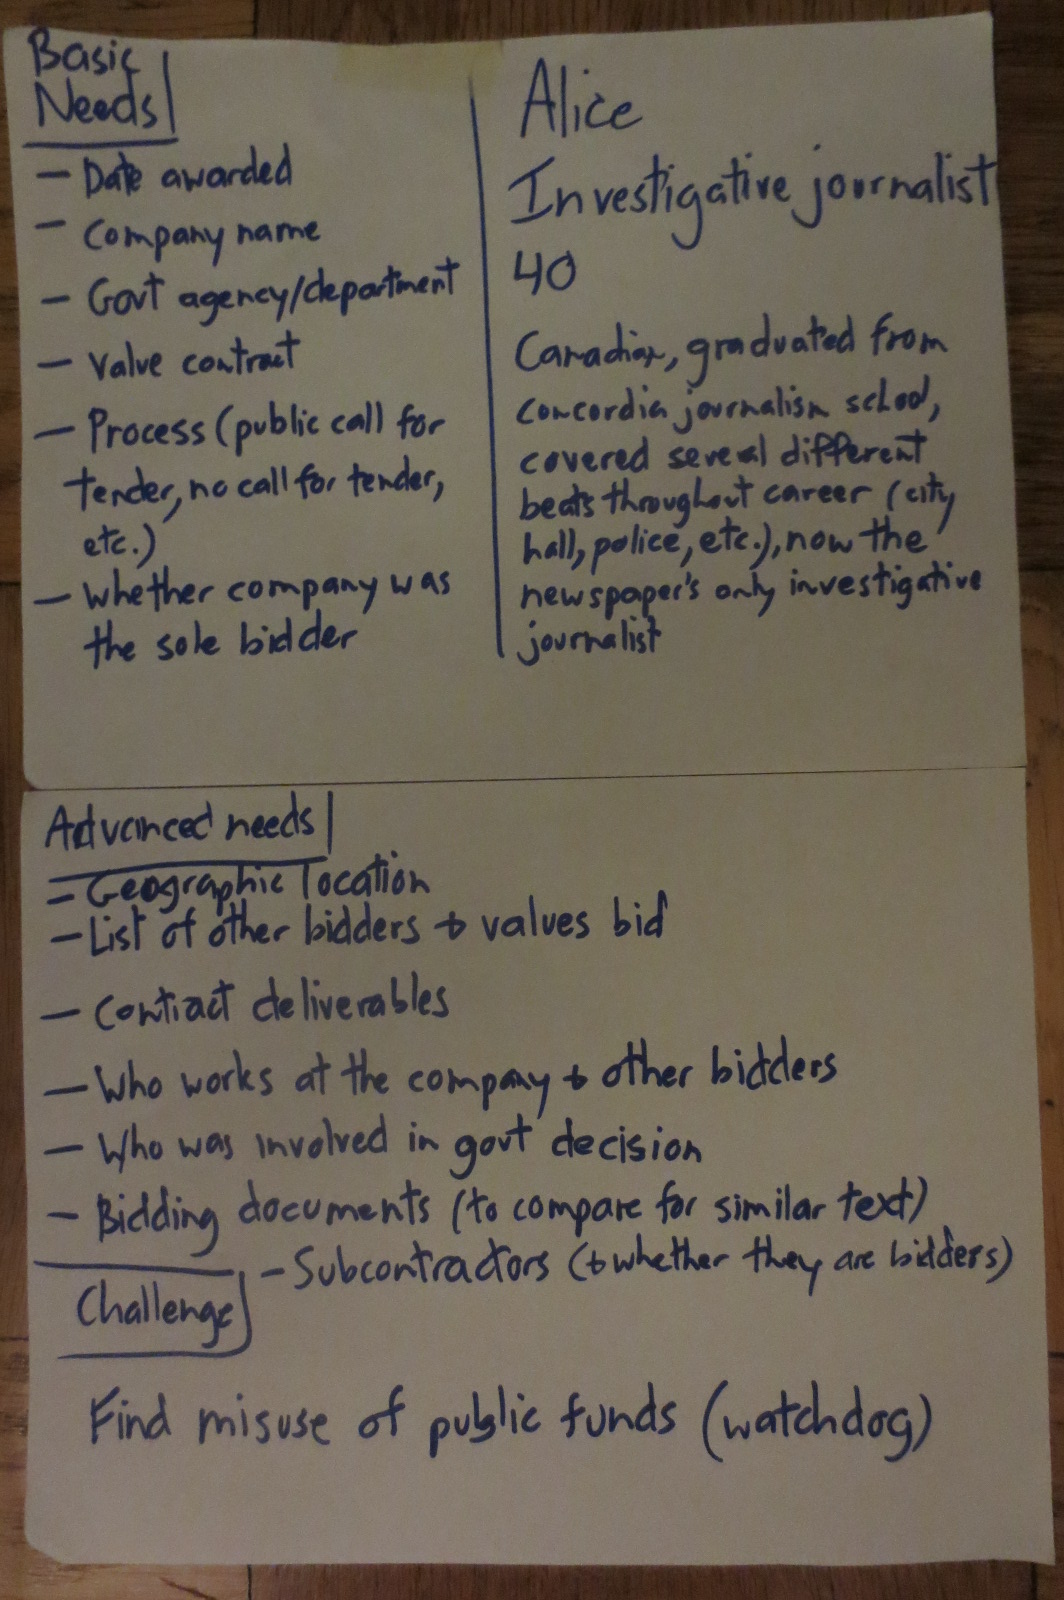 Basic
Needs
- Date awarded
- Company name
- Govt agency/department
- Value contract
- Process (public call for
tender, no call for tender,
etc.)
- Whether company was
the sole bidder
Alice
Investigative journalist
40
Canadian, graduated from
Concordia journalism school,
covered several different
beats throughout career (city
hall, police, etc.), now the
newspaper's only investigative
journalist
Advanced needs
- Geographic location
- List of other bidders + values bid
- Contract deliverables
- Who works at the company + other bidders
- Who was involved in govt decision
- Bidding documents (to compare for similar text)
- Subcontractors (+ whether they are bidders)
Challenge
Find misuse of public funds (watchdog)